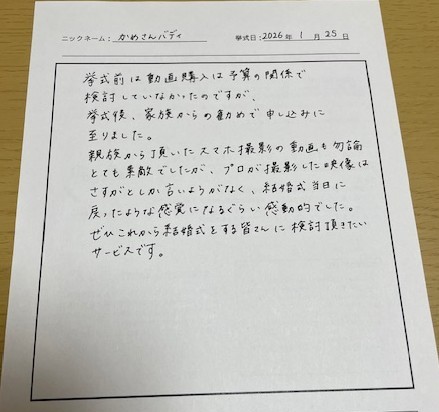 ニックネーム： かめさんバディ 挙式日：2026年 1月 25日
挙式前は動画購入は予算の関係で
検討していなかったのですが、
挙式後、家族からの勧めで申し込みに
至りました。
親族から頂いたスマホ撮影の動画も勿論
とても素敵でしたが、プロが撮影した映像は
さすがとしか言いようがなく、結婚式当日に
戻ったような感覚になるぐらい感動的でした。
ぜひこれから結婚式をする皆さんに検討頂きたい
サービスです。